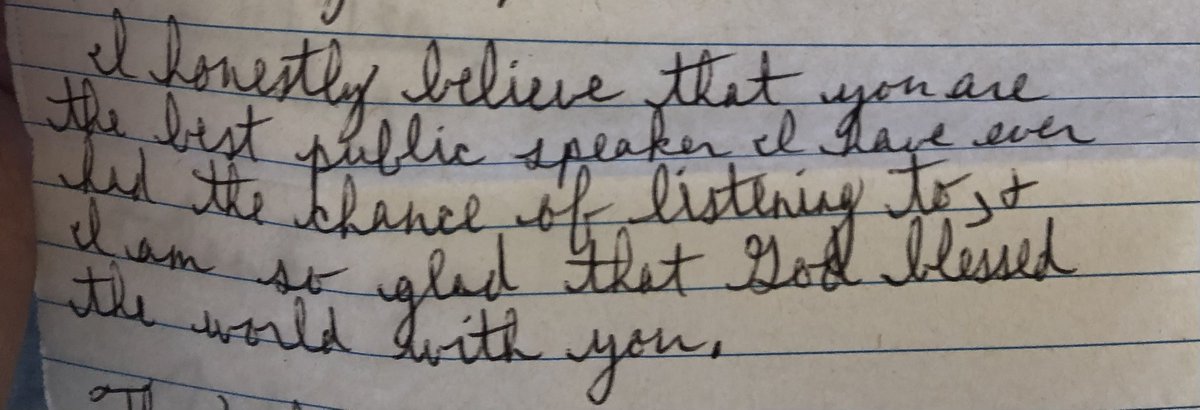 I honestly believe that you are
the best public speaker I have ever
had the chance of listening to, +
I am so glad that God blessed
the world with you.